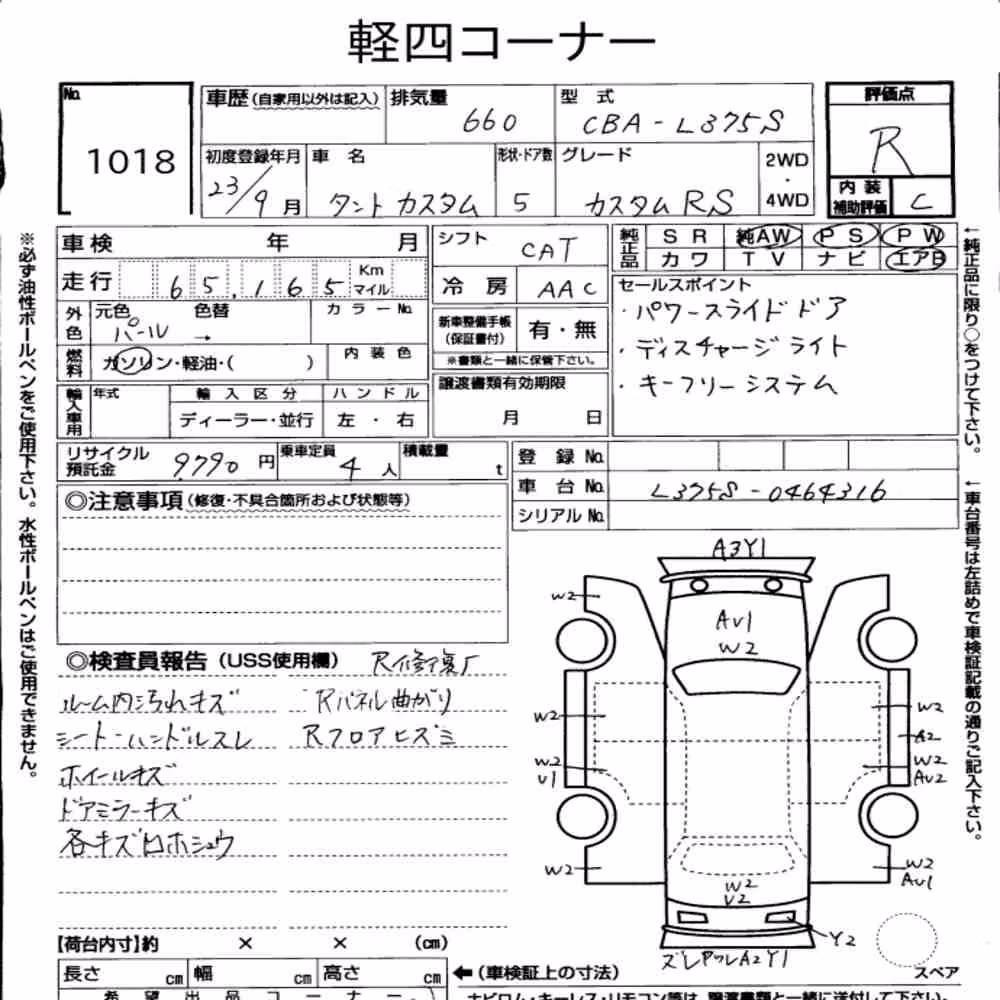 軽四コーナー
No. 1018
車歴(自家用以外は記入) 排気量 660 型 式 CBA-L375S
初度登録年月 23/9月 車 名 タントカスタム 形状・ドア数 5 グレード カスタムRS 2WD・4WD
評価点 R
内装補助評価 C
車検 年 月
走行 65,165 Km マイル
外色 元色 パール 色替 → カラーNo.
燃料 ガソリン・軽油・( ) 内装色
輸入車用 年式 輸入区分 ディーラー・並行 ハンドル 左・右
シフト CAT
冷房 AAC
新車整備手帳(保証書付) 有・無
※書類と一緒に保管下さい。
譲渡書類有効期限
月 日
純正品 SR 純AW PS PW
カワ TV ナビ エアB
セールスポイント
・パワースライドドア
・ディスチャージライト
・キーフリーシステム
リサイクル預託金 9790円 乗車定員 4人 積載量 t
登録No.
車台No. L375S-0464316
シリアルNo.
◎注意事項(修復・不具合箇所および状態等)
◎検査員報告(USS使用欄) R修復歴
ルーム内汚れキズ Rパネル曲がり
シート・ハンドルスレ Rフロアヒズミ
ホイールキズ
ドアミラーキズ
各キズ凹ホシュウ
A3Y1
W2
AV1
W2
W2 W2
A2
W2 W2
U1 AU2
W2 W2
AU1
W2
U2
Y2
ズレ A2Y1
スペア
【荷台内寸】約 × × (cm)
長さ cm 幅 cm 高さ cm
←(車検証上の寸法)
希望出品コーナー
ナビロム・キーレス・リモコン等は、譲渡書類と一緒に送付して下さい。
※必ず油性ボールペンをご使用下さい。水性ボールペンはご使用できません。
←純正品に限り○をつけて下さい。
←車台番号は左詰めで車検証記載の通りご記入下さい。